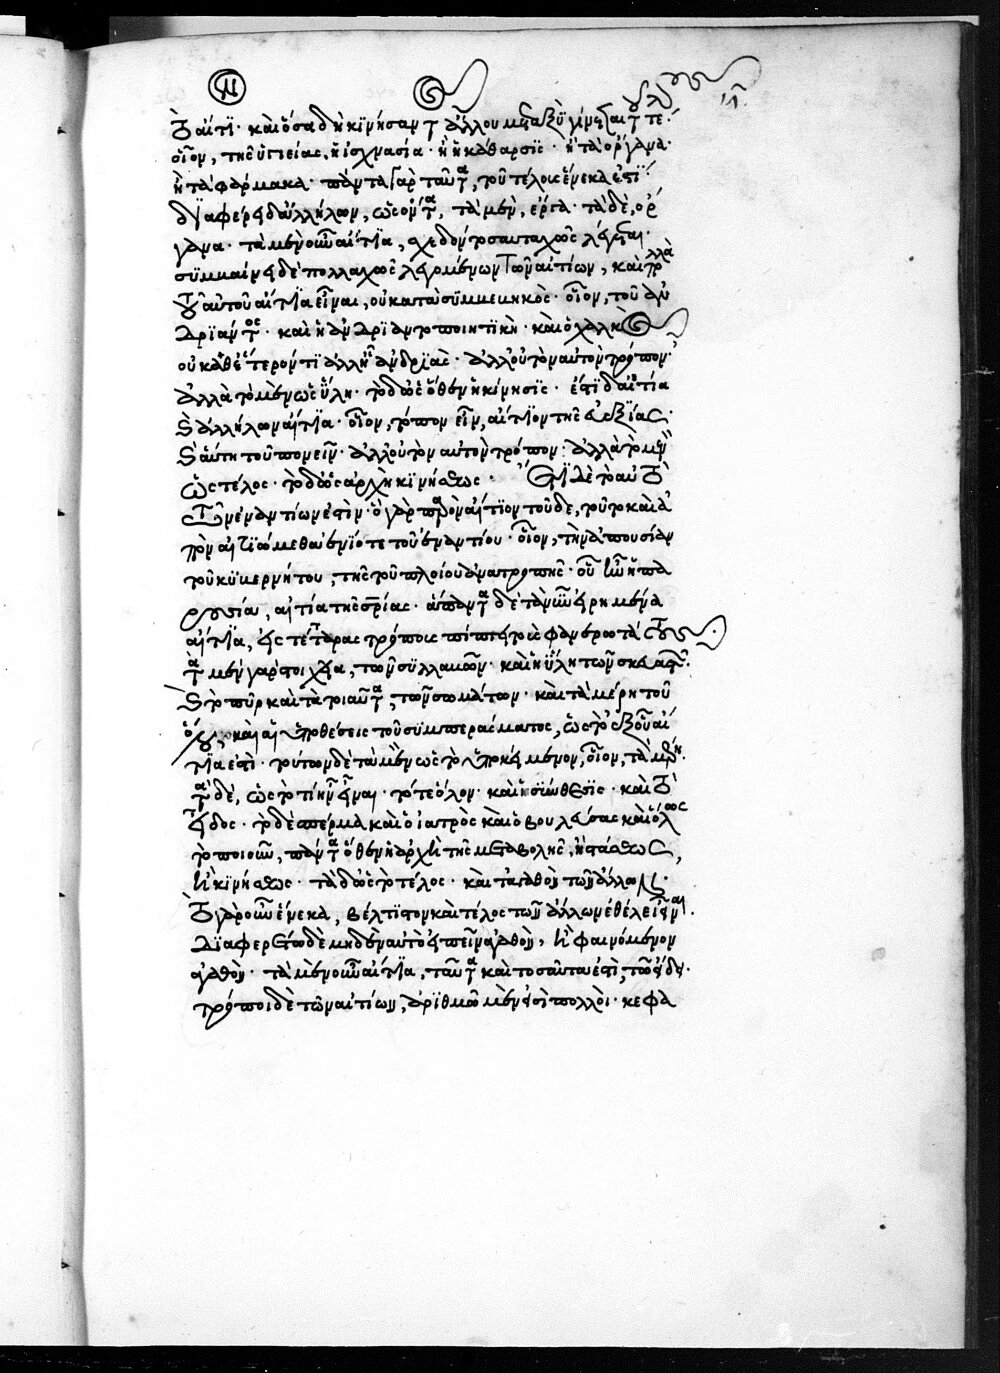 τὸ αἴτιον· καὶ ὅσα δὴ κινήσαντος ἄλλου μεταξὺ γίνεται τοῦ τέλους·
οἷον, τῆς ὑγιείας, ἡ ἰσχνασία· ἢ ἡ κάθαρσις· ἢ τὰ ὄργανα·
ἢ τὰ φάρμακα· πάντα γὰρ ταῦτα, τοῦ τέλους ἕνεκα ἐστί·
διαφέρει δὲ ἀλλήλων, ὡς ὄντα, τὰ μὲν, ἔργα· τὰ δὲ, ὄρ
γανα· τὰ μὲν οὖν αἴτια, σχεδὸν τοσαυταχῶς λέγεται·
συμβαίνει δὲ πολλαχῶς λεγομένων τῶν αἰτίων, καὶ πολλὰ
τοῦ αὐτοῦ αἴτια εἶναι, οὐ κατὰ συμβεβηκός· οἷον, τοῦ ἀν
δριάντος· καὶ ἡ ἀνδριαντοποιητικὴ· καὶ ὁ χαλκὸς
οὐ καθ' ἕτερόν τι ἀλλ' ᾗ ἀνδριάς· ἀλλ' οὐ τὸν αὐτὸν τρόπον·
ἀλλὰ τὸ μὲν ὡς ὕλη· τὸ δ' ὡς ὅθεν ἡ κίνησις· ἔστι δ' αἴτια
καὶ ἀλλήλων αἴτια· οἷον, τὸ πονεῖν, αἴτιον τῆς εὐεξίας·
καὶ αὕτη τοῦ πονεῖν· ἀλλ' οὐ τὸν αὐτὸν τρόπον· ἀλλὰ τὸ μὲν
ὡς τέλος· τὸ δ' ὡς ἀρχὴ κινήσεως· ἔτι δὲ τὸ αὐτὸ
τῶν ἐναντίων ἐστίν· ὃ γὰρ παρὸν αἴτιον τοῦδε, τοῦτο καὶ ἀ
πὸν αἰτιώμεθα ἐνίοτε τοῦ ἐναντίου· οἷον, τὴν ἀπουσίαν
τοῦ κυβερνήτου, τῆς τοῦ πλοίου ἀνατροπῆς· οὗ ἦν ἡ πα
ρουσία, αἰτία τῆς σωτηρίας· ἅπαντα δὲ τὰ νῦν εἰρημένα
αἴτια, εἰς τέτταρας τρόπους πίπτει τοὺς φανερωτάτους·
τὰ μὲν γὰρ στοιχεῖα, τῶν συλλαβῶν· καὶ ἡ ὕλη τῶν σκευαστῶν·
καὶ τὸ πῦρ καὶ τὰ τοιαῦτα, τῶν σωμάτων· καὶ τὰ μέρη τοῦ
ὅλου, καὶ αἱ ὑποθέσεις τοῦ συμπεράσματος, ὡς τὸ ἐξ οὗ αἴ
τιά ἐστι· τούτων δὲ τὰ μὲν ὡς τὸ ὑποκείμενον, οἷον, τὰ μέρη·
τὰ δὲ, ὡς τὸ τί ἦν εἶναι· τό τε ὅλον· καὶ ἡ σύνθεσις· καὶ τὸ
εἶδος· τὸ δὲ σπέρμα καὶ ὁ ἰατρὸς καὶ ὁ βουλεύσας καὶ ὅλως
τὸ ποιοῦν, πάντα ὅθεν ἡ ἀρχὴ τῆς μεταβολῆς, ἢ στάσεως,
ἢ κινήσεως· τὰ δ' ὡς τὸ τέλος· καὶ τἀγαθὸν τῶν ἄλλων·
τὸ γὰρ οὗ ἕνεκα, βέλτιστον καὶ τέλος τῶν ἄλλων ἐθέλει εἶναι.
διαφερέτω δὲ μηδὲν αὐτὸ εἰπεῖν ἀγαθὸν, ἢ φαινόμενον
ἀγαθόν· τὰ μὲν οὖν αἴτια, ταῦτα καὶ τοσαῦτα ἐστὶ τῷ εἴδει·
τρόποι δὲ τῶν αἰτίων, ἀριθμῷ μέν εἰσι πολλοὶ· κεφα